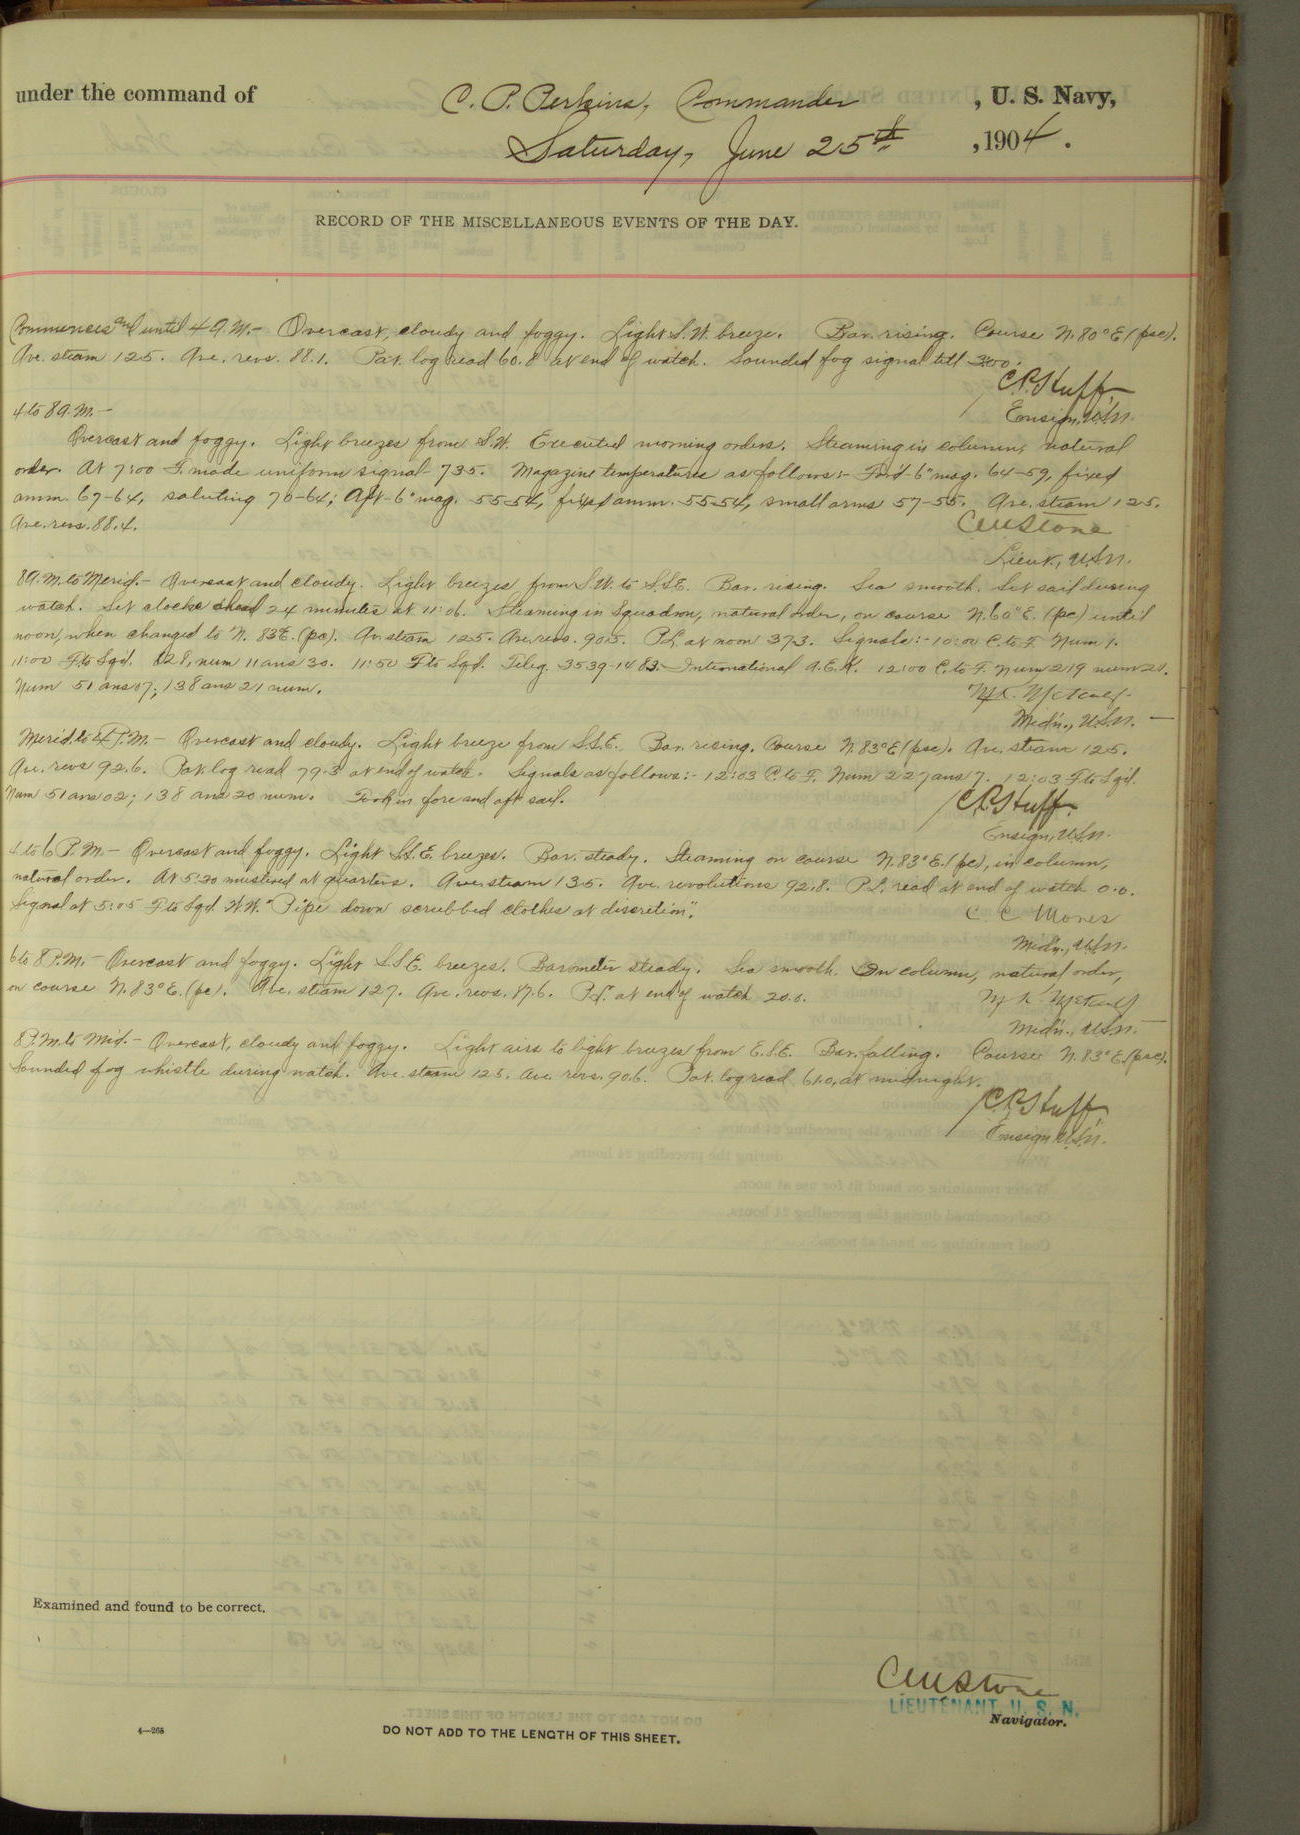 under the command of C. P. Perkins, Commander , U. S. Navy,
Saturday, June 25th , 1904 .
RECORD OF THE MISCELLANEOUS EVENTS OF THE DAY.
Commences and until 4 A.M.- Overcast, cloudy and foggy. Light S.W. breeze. Bar. rising. Course N. 80° E (psc).
Ave. steam 125. Ave. revs. 88.1. Pat. log read 60.8 at end of watch. Sounded fog signal till 3:00.
Ensign, U.S.N.
4 to 8 A.M.-
Overcast and foggy. Light breezes from S.W. Executed morning orders. Steaming in column, natural
order. At 7:00 F. made uniform signal 735. Magazine temperatures as follows:- For'd 6" mag. 64-59, fixed
amm. 67-64, saluting 70-64; Aft 6" mag. 55-54, fixed amm. 55-54, small arms 57-55. Ave. steam 125.
Ave. revs. 88.4. CMStone
Lieut., U.S.N.
8 A.M. to Merid.- Overcast and cloudy. Light breezes from S.W. to S.S.E. Bar. rising. Sea smooth. Set sail during
watch. Set clocks ahead 24 minutes at 11:06. Steaming in Squadron, natural order, on course N. 60° E. (pc) until
noon, when changed to N. 83° E. (pc). Av. steam 125. Ave. revs. 90.5. P.L. at noon 37.3. Signals:- 10:00 C. to F. Num 1.
11:00 F to Sqd. 128, num 11 ans 30. 11:50 F to Sqd. Teleg. 3539-1483- International A.E.K. 12:00 C. to F. Num 219 num 20.
Num 51 ans 07; 138 ans 21 num.
Mid'n., U.S.N. -
Merid. to 4 P.M.- Overcast and cloudy. Light breeze from S.S.E. Bar. rising. Course N. 83° E (psc). Ave. steam 125.
Ave. revs 92.6. Pat. log read 79.3 at end of watch. Signals as follows:- 12:03 C. to F. Num 227 ans 7. 12:03 F to Sqd.
Num 51 ans 02; 138 ans 20 num. Took in fore and aft sail.
Ensign, U.S.N.
4 to 6 P.M.- Overcast and foggy. Light S.S.E. breezes. Bar. steady. Steaming on course N. 83° E. (pc), in column,
natural order. At 5:30 mustered at quarters. Ave. steam 135. Ave. revolutions 92.8. P.L. read at end of watch 0.0.
Signal at 5:05 F to Sqd W.W. "Pipe down scrubbed clothes at discretion".
C. C. Moses
Mid'n., U.S.N.
6 to 8 P.M.- Overcast and foggy. Light S.S.E. breezes. Barometer steady. Sea smooth. In column, natural order,
on course N. 83° E. (pc). Ave. steam 127. Ave. revs. 87.6. P.L. at end of watch 20.0.
Mid'n., U.S.N.
8 P.M. to Mid.- Overcast, cloudy and foggy. Light airs to light breezes from E.S.E. Bar. falling. Course N. 83° E. (psc).
Sounded fog whistle during watch. Ave. steam 125. Ave. revs. 90.6. Pat. log read 61.0, at midnight.
Ensign U.S.N.
Examined and found to be correct.
CMStone
LIEUTENANT, U. S. N.
Navigator.
4—265
DO NOT ADD TO THE LENGTH OF THIS SHEET.